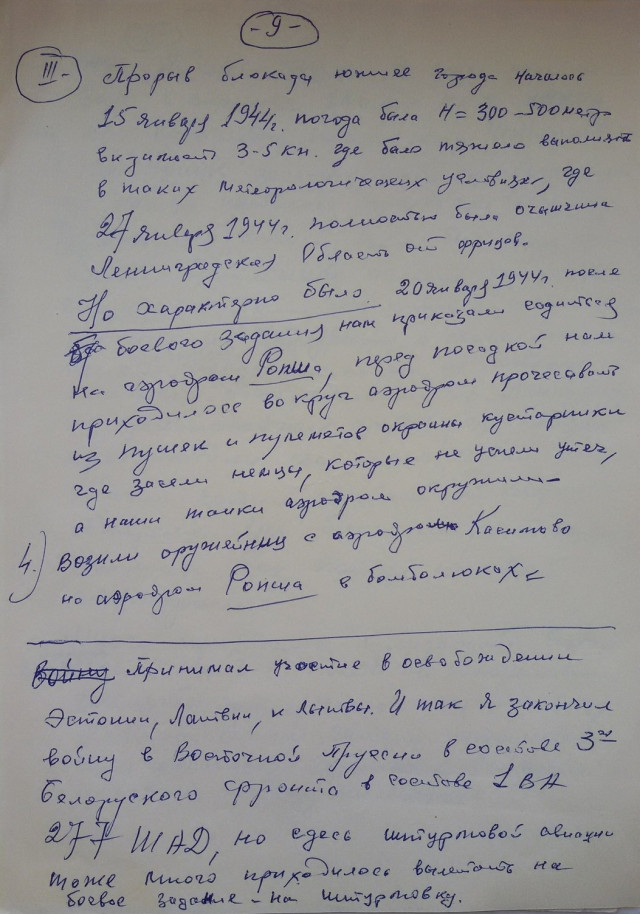 - 9 -
III - Прорыв блокады южнее города началось
15 января 1944г. погода была H = 300-500 метр
видимость 3-5 км. где было тяжело выполнять
в таких метеорологических условиях, где
27 января 1944г. полностью была очищена
Ленинградская Область от фрицов.
Но характерно было 20 января 1944г. после
боевого задания нам приказали садиться
на аэродром Ропша, перед посадкой нам
приходилось вокруг аэродром прочесывать
из пушек и пулеметов окраины кустарники
где засели немцы, которые не успели утеч,
а наши танки аэродром окружили -
4.) Возили оружейниц с аэродром Касимово
на аэродром Ропша в бомболюках
войну Принимал участие в освобождении
Эстонии, Латвии, и Литвы. И так я закончил
войну в Восточной Пруссии в составе 3го
Белоруского фронта в составе 1 ВА
277 ШАД, но сдесь штурмовой авиации
тоже много приходилось вылетать на
боевое задание - на штурмовку.